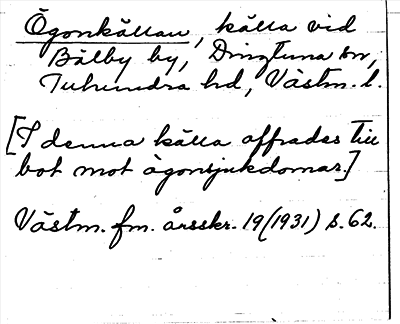 Ögonkällan, källa vid
Bälby by, Dingtuna sn,
Tuhundra hd, Västm. l.
[I denna källa offrades till
bot mot ögonsjukdomar.]
Västm. fm. årsskr. 19 (1931) s. 62.